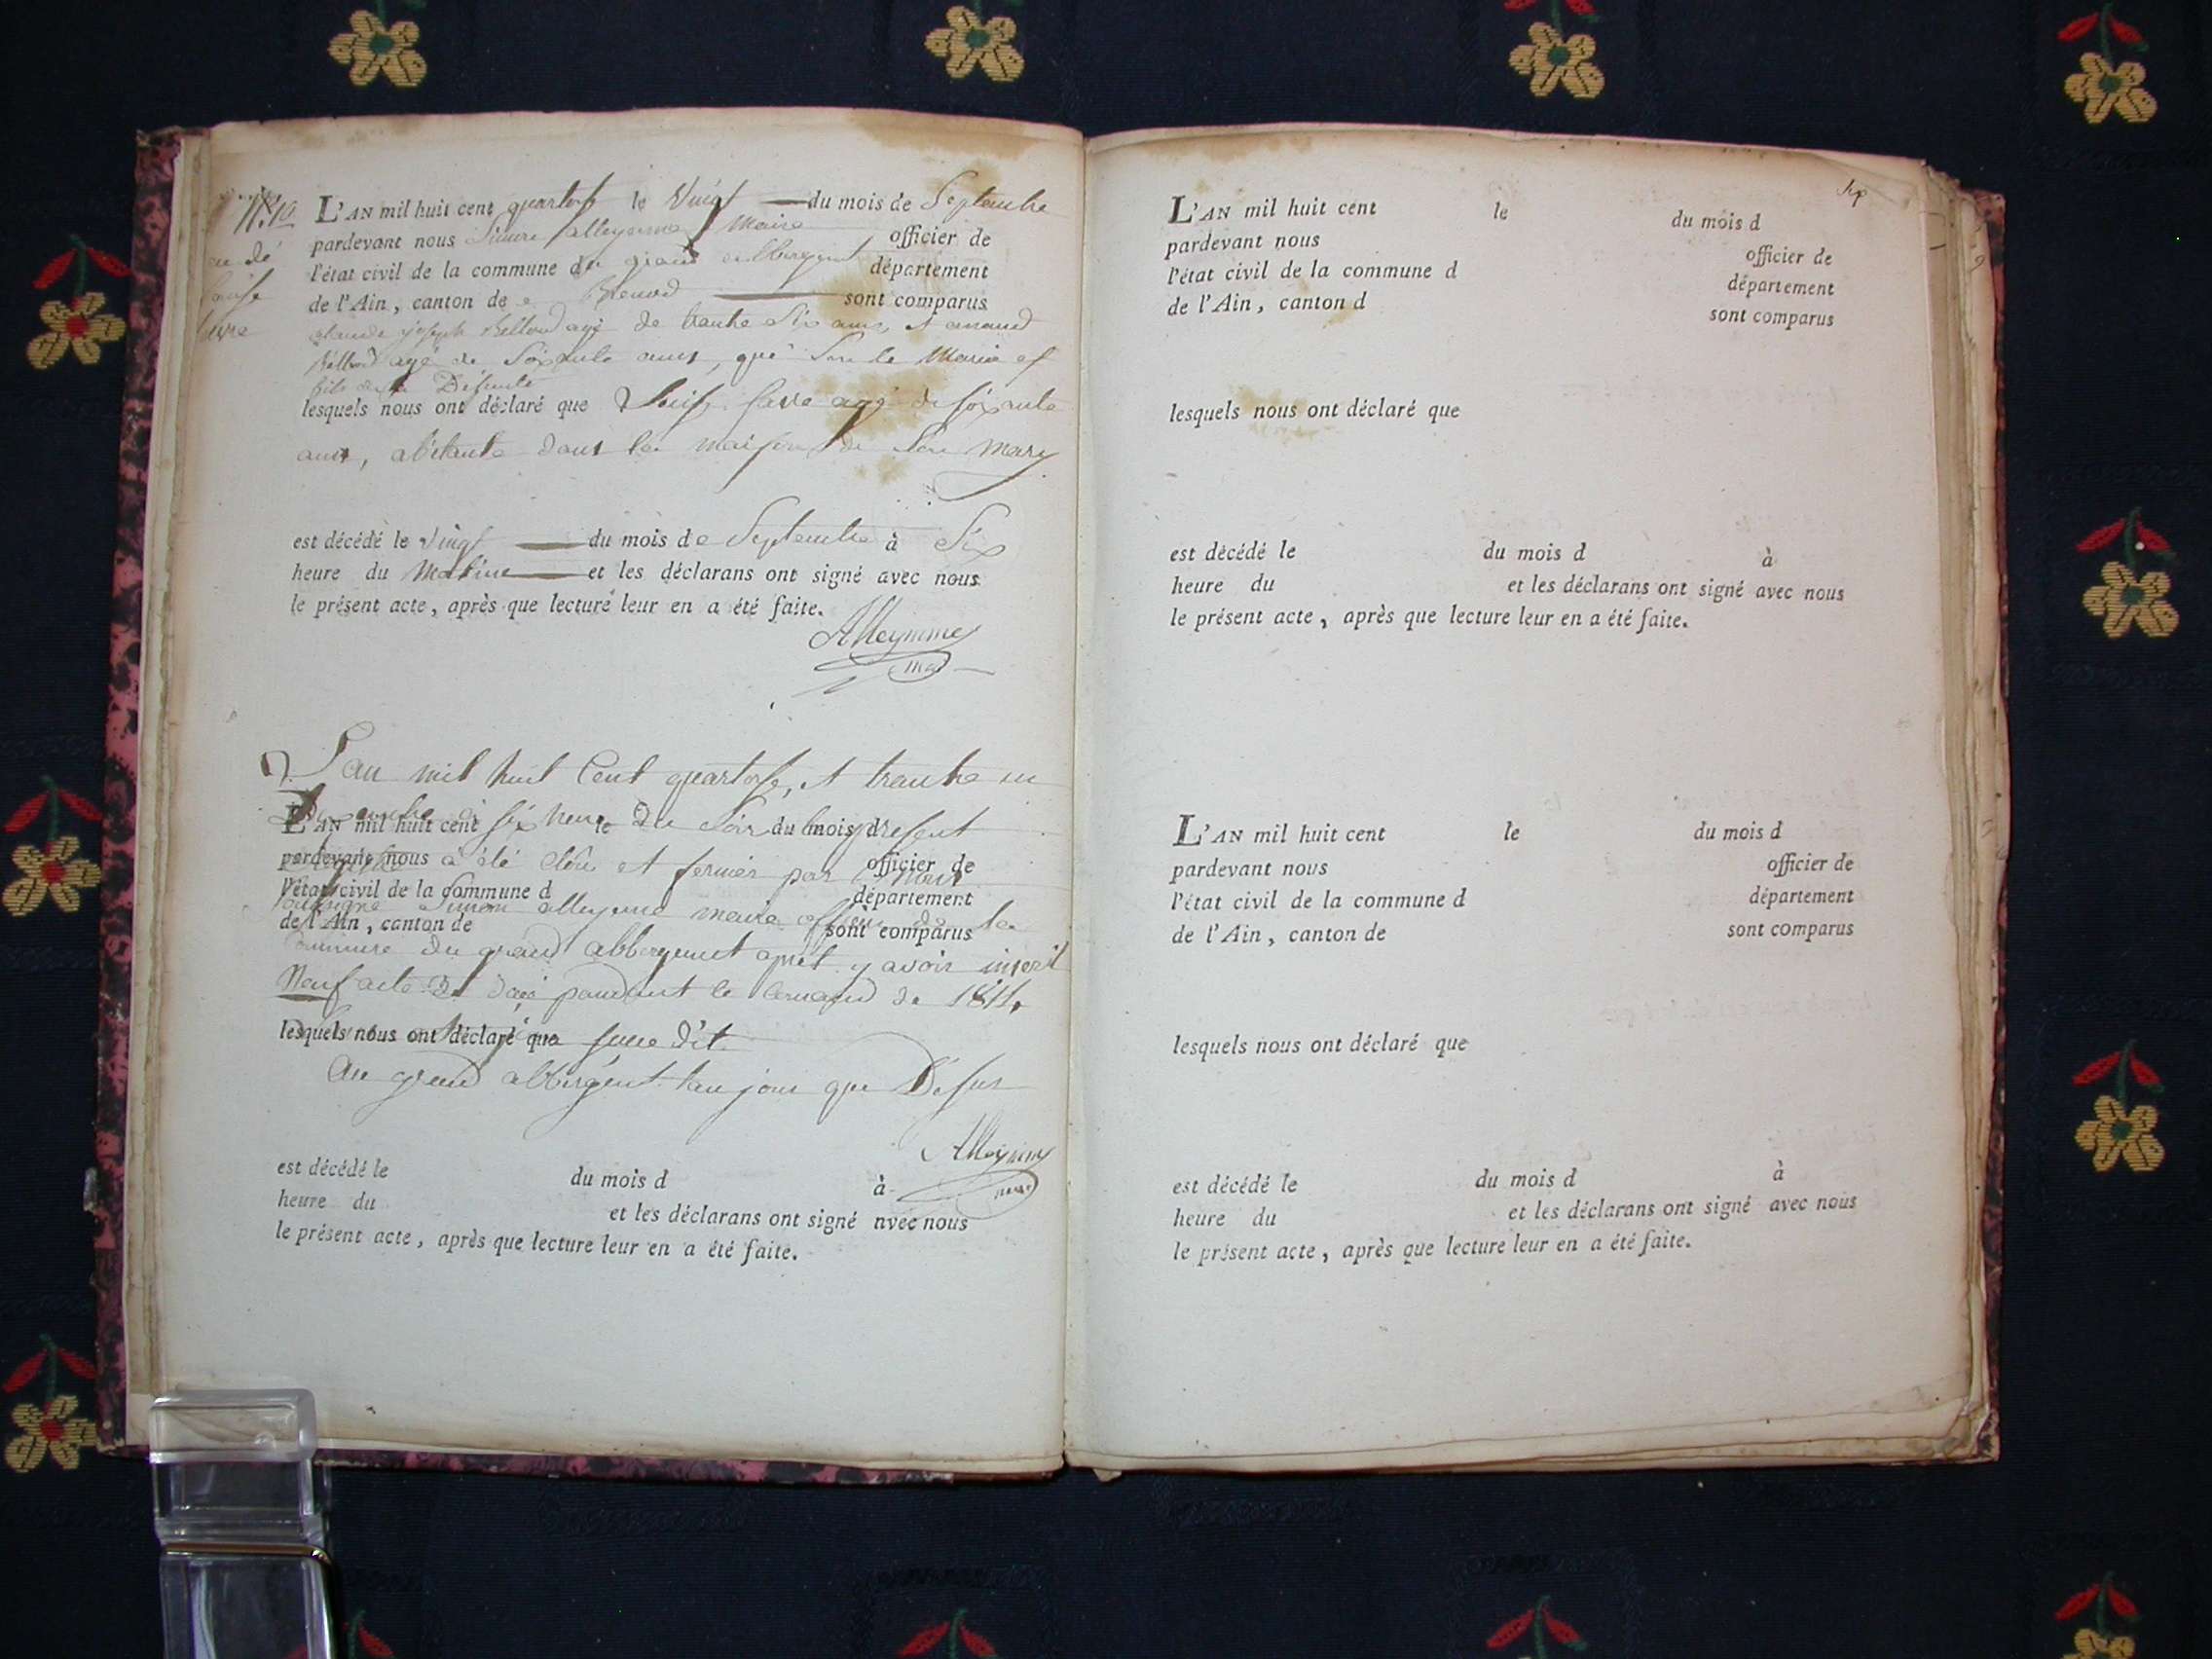 L'AN mil huit cent quartorse le Vingt du mois de Septembre
pardevant nous Simon alleyeme Maire officier de
l'état civil de la commune du grand abbergent département
de l'Ain, canton de Brenod sont comparus
claude joseph Belloud agé de trante Six ans, et
Belloud agé de Soixante ans, que Son le Marie et
fils de la Défunte
lesquels nous ont déclaré que Louise favre agé de soixante
ans, abitante dans la maison de Son Mary
est décédé le Vingt du mois de Septembre à Six
heure du Matine et les déclarans ont signé avec nous
le présent acte, après que lecture leur en a été faite.
Alleymme
L'an mil huit Cent quartorse, et trante un
à six heure Du Soir le present
L'AN mil huit cent le du mois d
a été clôu et fermér par nous
pardevant nous officier de
l'état civil de la commune d département
Simon alleyeme maire de la
de l'Ain, canton de sont comparus
Commune du grand abbergement apret y avoir inscrit
Neuf acte de pandant le de 1814.
lesquels nous ont déclaré que
Dit
Au grand abbergent lan jour que Desus
Alleymme
est décédé le du mois d à
heure du et les déclarans ont signé nvec nous
le présent acte, après que lecture leur en a été faite.
L'AN mil huit cent le du mois d
pardevant nous officier de
l'état civil de la commune d département
de l'Ain, canton d sont comparus
lesquels nous ont déclaré que
est décédé le du mois d à
heure du et les déclarans ont signé avec nous
le présent acte, après que lecture leur en a été faite.
L'AN mil huit cent le du mois d
pardevant nous officier de
l'état civil de la commune d département
de l'Ain, canton de sont comparus
lesquels nous ont déclaré que
est décédé le du mois d à
heure du et les déclarans ont signé avec nous
le présent acte, après que lecture leur en a été faite.